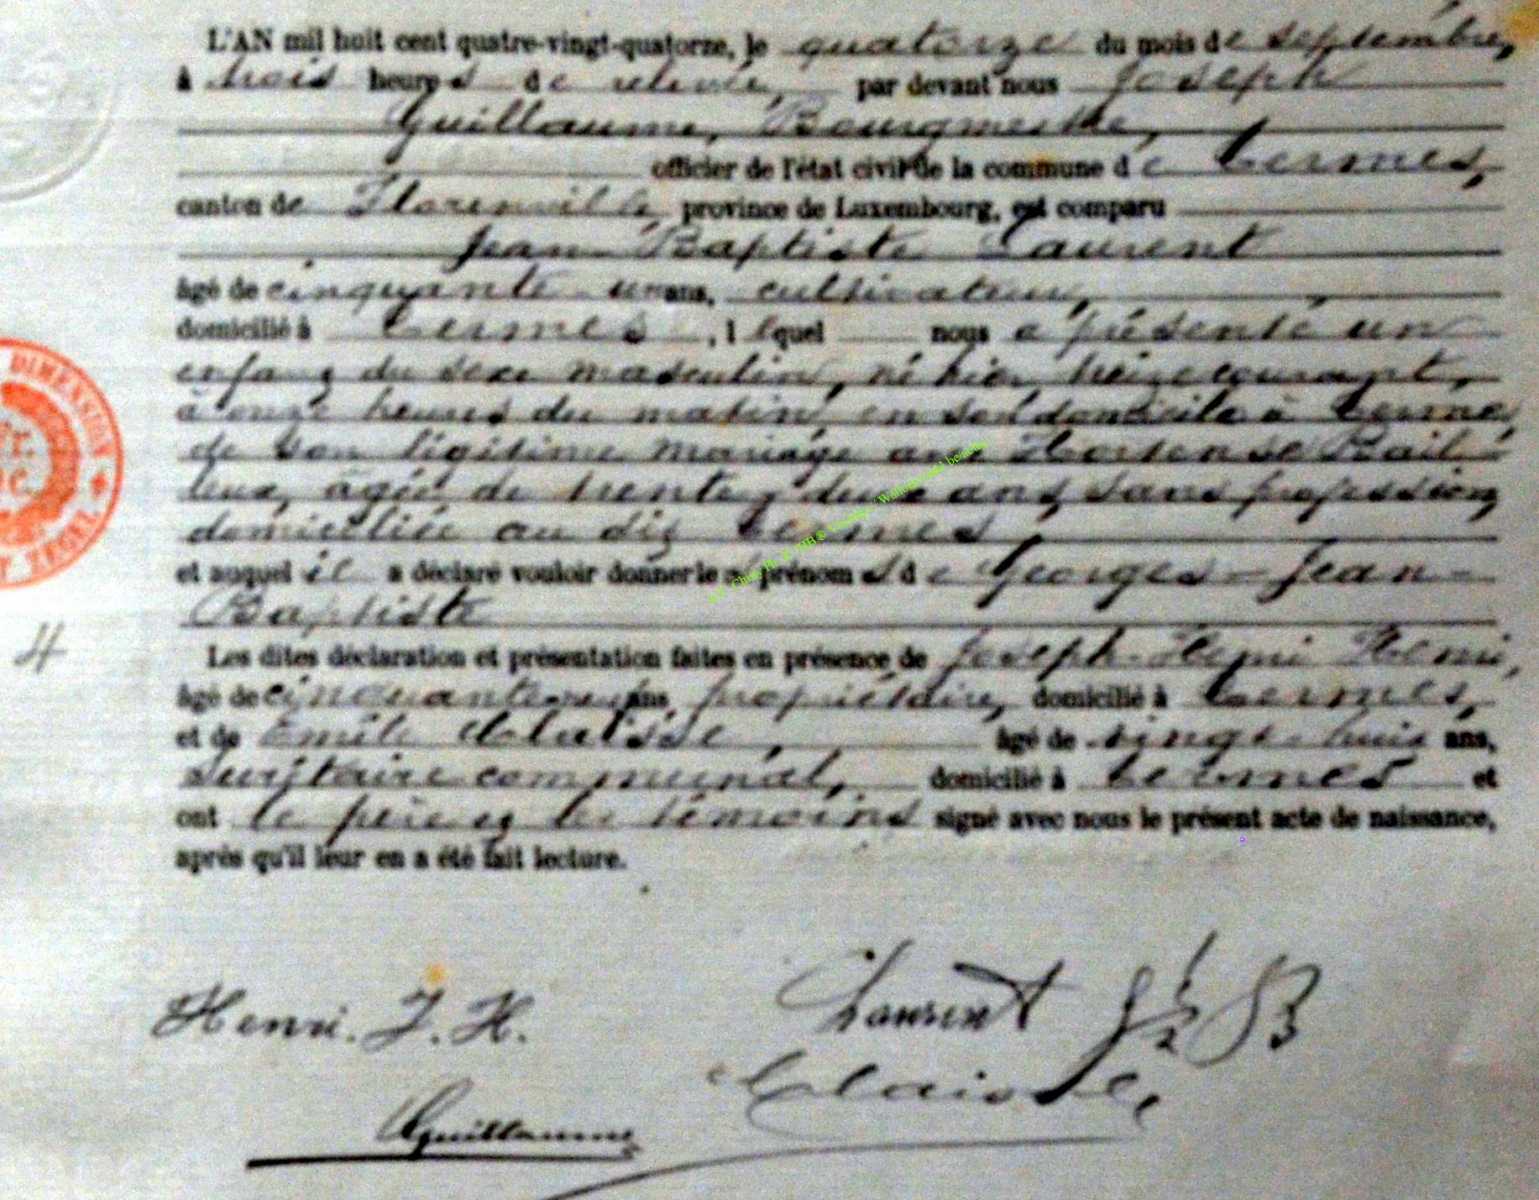 L'AN mil huit cent quatre-vingt-quatorze, le quatorze du mois de septembre,
à trois heures de relevée, par devant nous Joseph
Guillaume, Bourgmestre,
officier de l'état civil de la commune de Termes,
canton de Florenville, province de Luxembourg, est comparu
Jean Baptiste Laurent
âgé de cinquante un ans, cultivateur,
domicilié à Termes, lequel nous a présenté un
enfant du sexe masculin, né hier, treize courant,
à onze heures du matin, en son domicile à Termes,
de son légitime mariage avec Hortense Bail-
leux, âgée de trente deux ans, sans profession,
domiciliée au dit Termes,
et auquel il a déclaré vouloir donner les prénoms de Georges-Jean-
Baptiste
Les dites déclaration et présentation faites en présence de Joseph-Henri Henri,
âgé de ans, propriétaire, domicilié à Termes,
et de Emile Claisse, âgé de vingt-huit ans,
Secrétaire communal, domicilié à Termes et
ont le père et les témoins signé avec nous le présent acte de naissance,
après qu'il leur en a été fait lecture.
DIMENSION
4
Henri. J. H. Laurent J B
Claisse
Guillaume